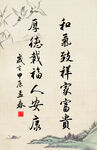 和氣致祥家富貴
厚德載福人安康
歲在甲辰孟春